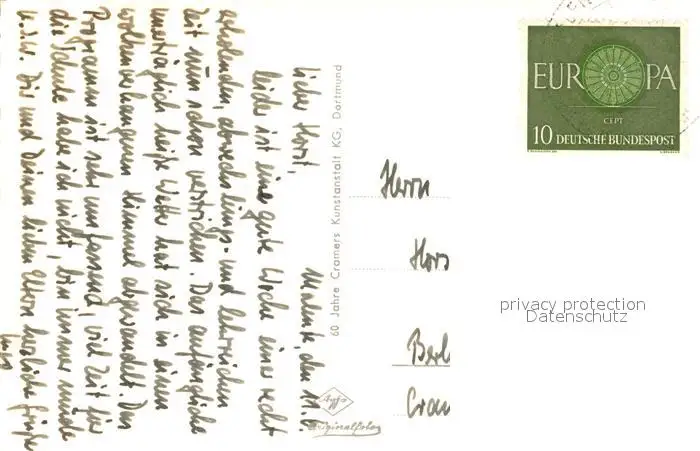 den 11.6.
Lieber Horst,
leider ist eine gute Woche einer recht
erholenden, abwechslungs- und lehrreichen
Zeit nun schon verstrichen. Das anfängliche
unerträglich heiße Wetter hat sich in einen
wolkenverhangenen Himmel abgewandelt. Das
Programm ist sehr umfassend, viel Zeit für
die Schule habe ich nicht, bin immer müde
u.s.w. Dir und Deinen lieben Eltern herzliche Grüße
60 Jahre Cramers Kunstanstalt KG, Dortmund
Agfa
Originalfoto
Herrn
Hors
Berl
Cran
EUROPA
CEPT
10 DEUTSCHE BUNDESPOST
privacy protection
Datenschutz